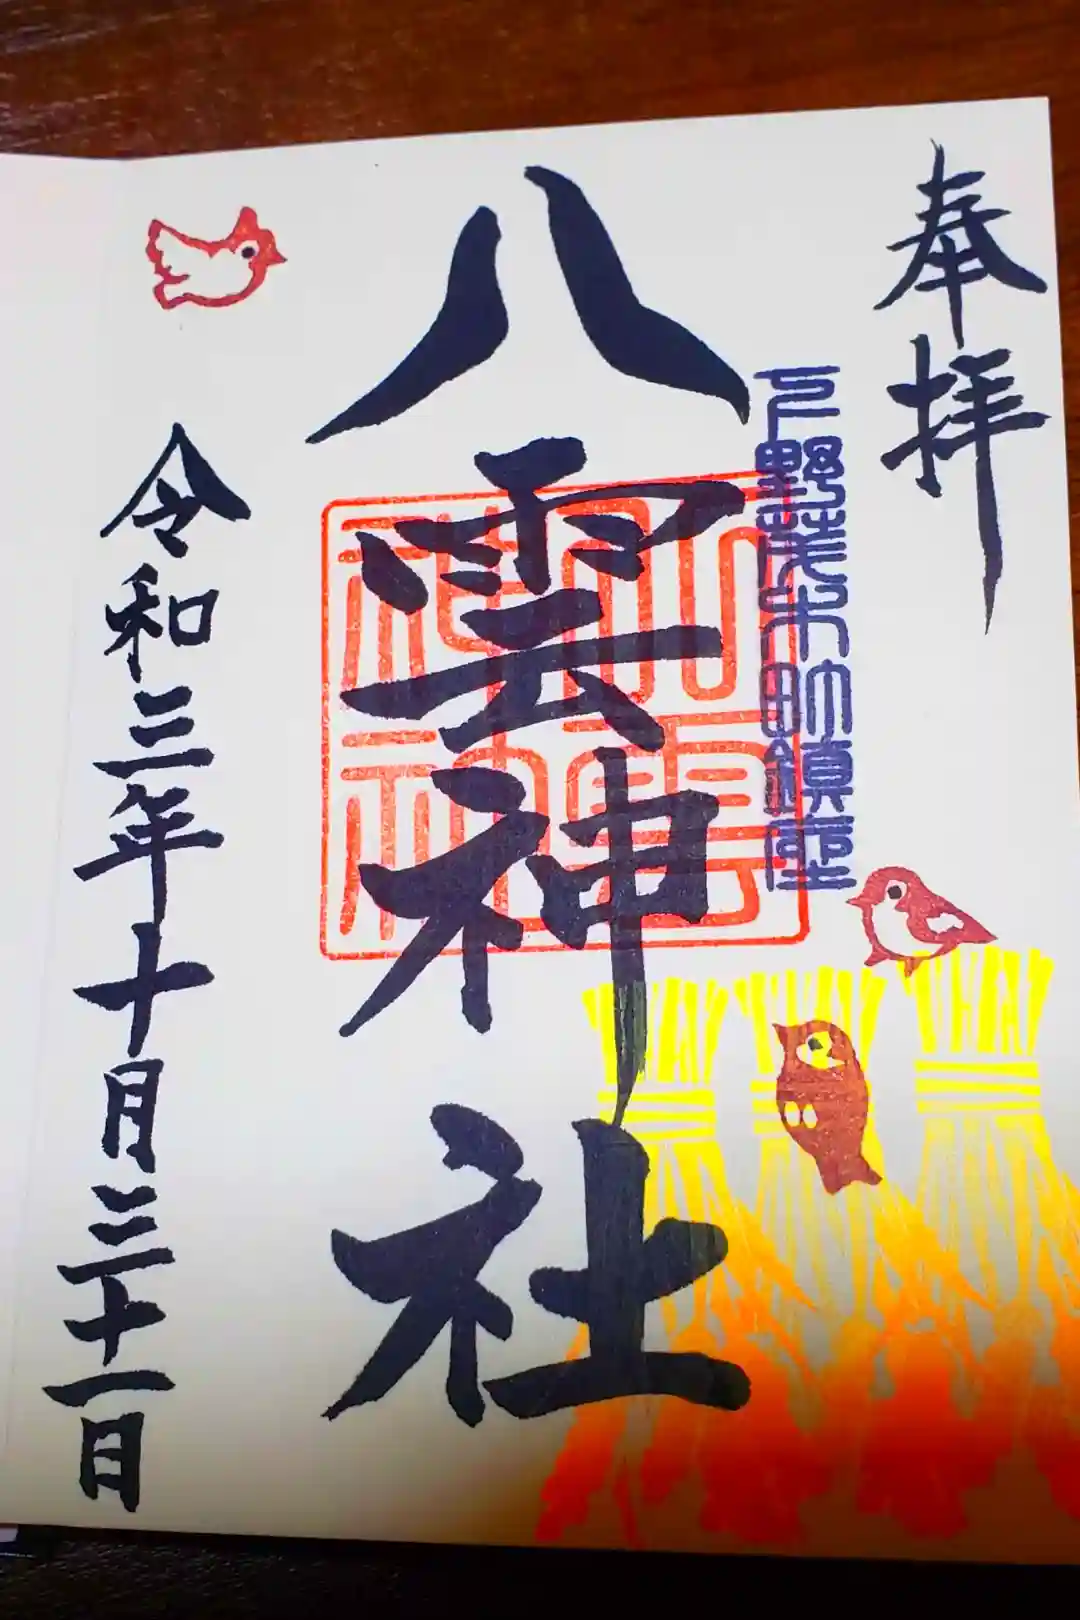 奉拝
下野茂木町鎮座
八雲神社
八雲神社
令和三年十月三十一日